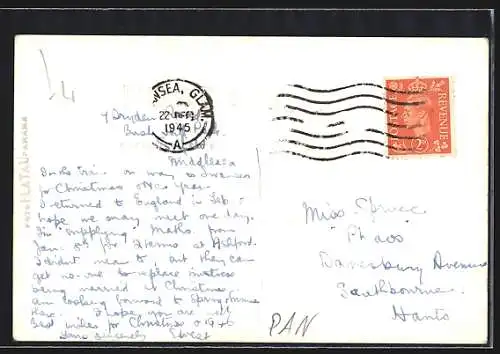 SWANSEA, GLAM.
22 DEC
1945
A
POSTAGE REVENUE
4 Dryden
Middlesex
In the train on way to Swansea
for Christmas & New Year.
I returned to England in Feb. &
hope we may meet one day.
I'm "supplying" Maths. from
Jan. 8th for 2 terms at
I didn't mean to, but they can
get no-one to replace mistress
being married at Christmas.
Am looking forward to Spring
Here. I hope you are well
Best wishes for Christmas & 1946
Yours sincerely
Miss Spruce
"Phaos"
Danesbury Avenue
Southbourne
Hants
PAN
FOTO FLATAU PANAMA